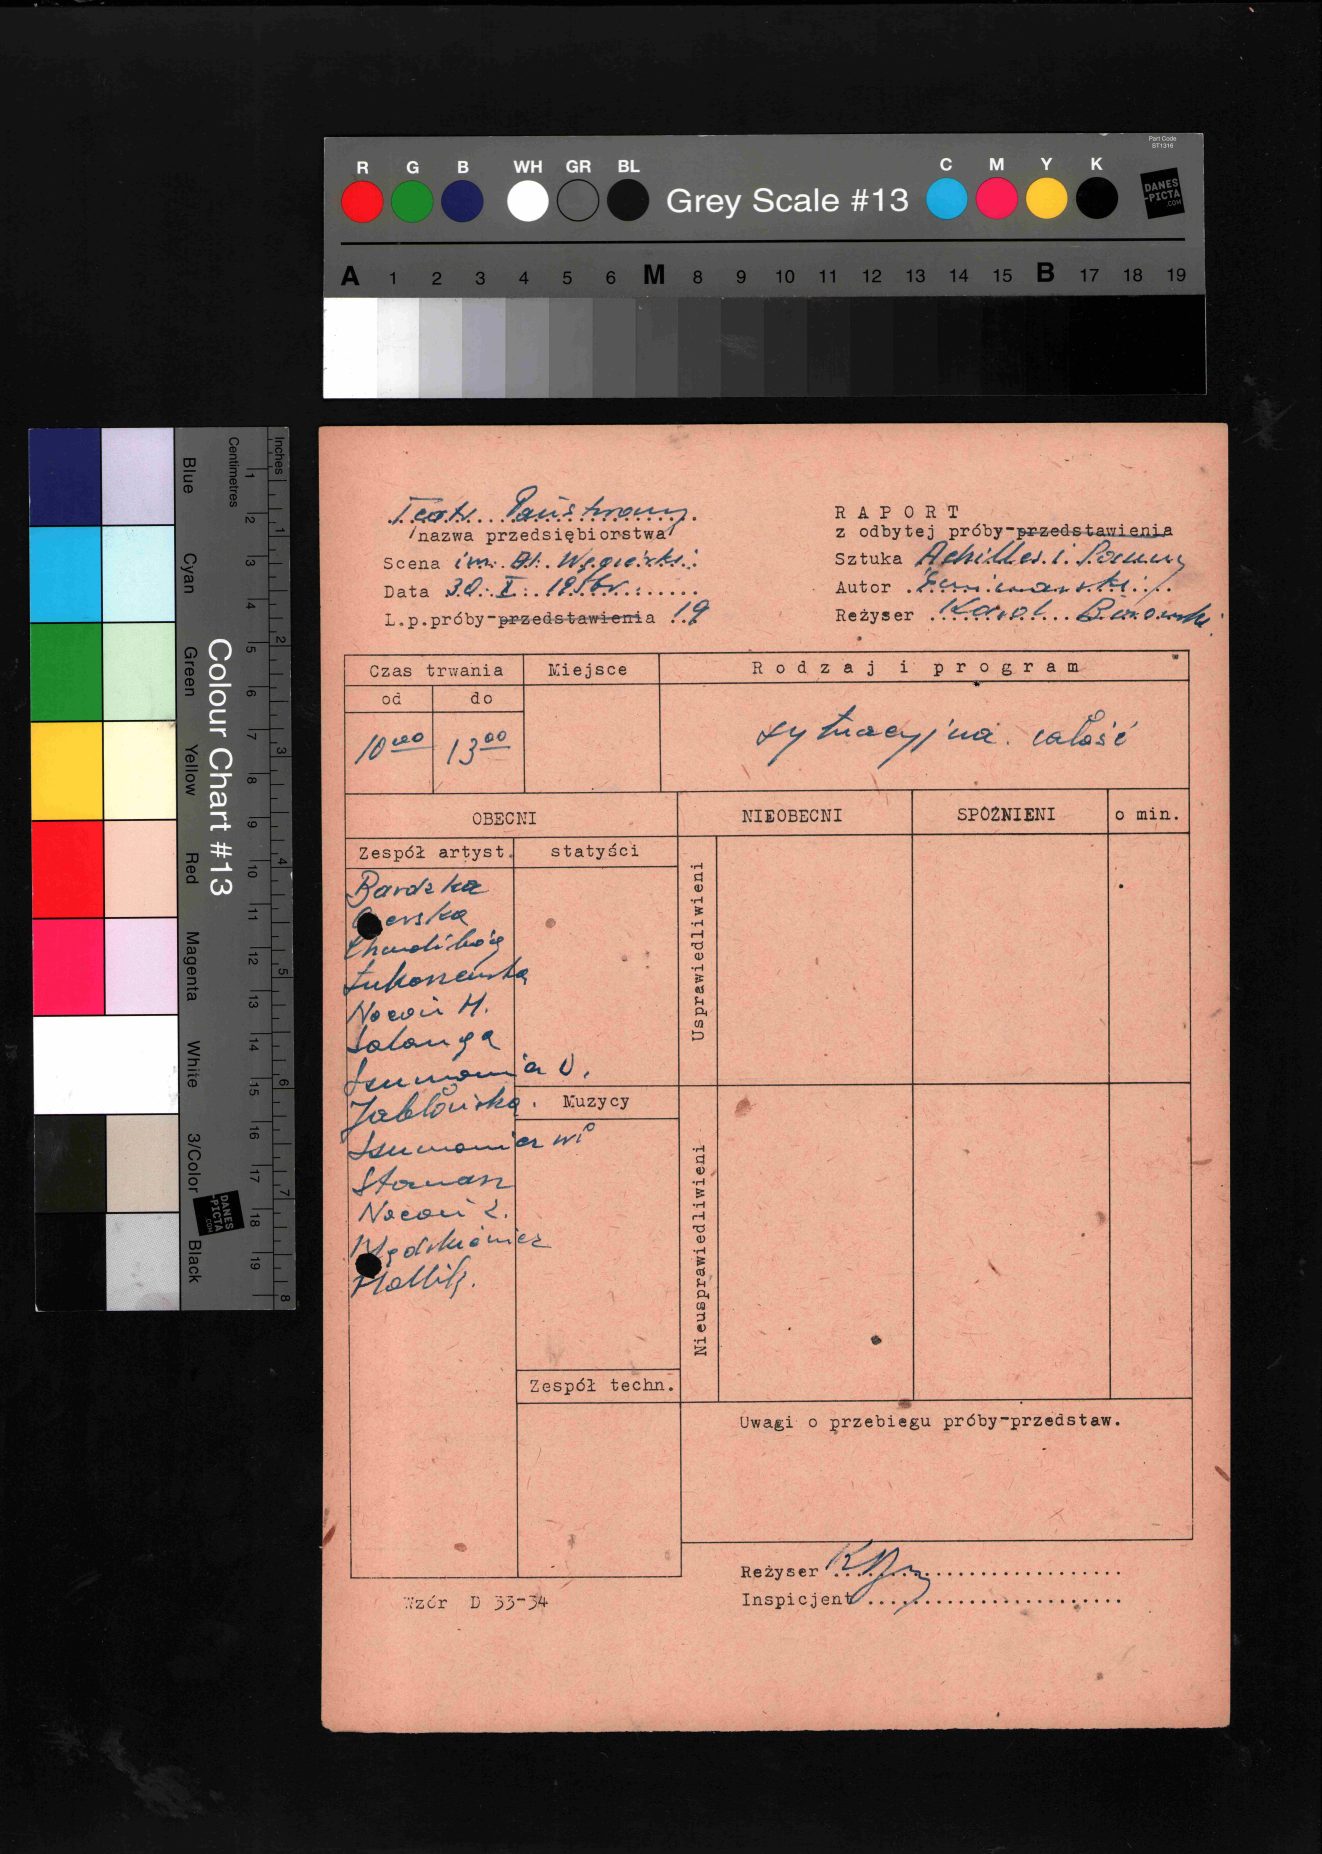 Part Code
ST1316
R G B WH GR BL Grey Scale #13 C M Y K
DANES
-PICTA
.COM
A 1 2 3 4 5 6 M 8 9 10 11 12 13 14 15 B 17 18 19
Colour Chart #13
Blue Cyan Green Yellow Red Magenta White 3/Color Black
Centimetres
1 2 3 4 5 6 7 8 9 10 11 12 13 14 15 16 17 18 19
Inches
1 2 3 4 5 6 7 8
DANES
-PICTA
.COM
Teatr Państwowy
/nazwa przedsiębiorstwa/
Scena im. Al. Węgierki
Data 30. X. 1956r.
L.p.próby-przedstawienia 19
RAPORT
z odbytej próby-przedstawienia
Sztuka Achilles i Panny
Autor
Reżyser Karol Borowski
Czas trwania Miejsce Rodzaj i program
od do
10 00 13 00 sytuacyjna. całość
OBECNI NIEOBECNI SPÓŹNIENI o min.
Zespół artyst. statyści
Usprawiedliwieni
Bardzka
Łukoszewska
Nocoń H.
Jabłońska.
Muzycy
Nieusprawiedliwieni
Nocoń
Zespół techn.
Uwagi o przebiegu próby-przedstaw.
Reżyser
Inspicjent
Wzór D 33-34